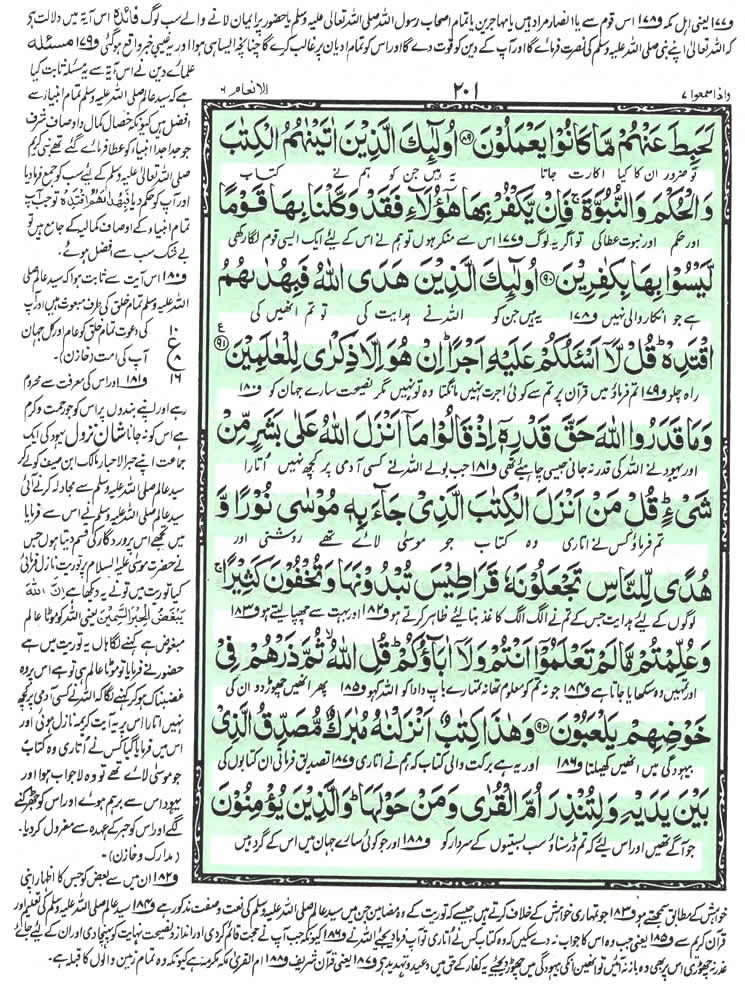 و۱۷۷ یعنی اہل مکہ و۱۷۸ اس قوم سے یا انصار مراد ہیں یا مہاجرین یا تمام اصحاب رسول اللہ صلی اللہ تعالیٰ علیہ وسلم یا حضور پر ایمان لانے والے سب لوگ فائدہ اس آیۃ میں دلالت ہے
کہ اللہ تعالیٰ اپنے نبی صلی اللہ علیہ وسلم کی نصرت فرمائے گا اور آپ کے دین کو قوت دے گا اور اس کو تمام ادیان پر غالب کرے گا چنانچہ ایسا ہی ہوا اور یہ غیبی خبر واقع ہوگئی و۱۷۹ مسئلہ
واذا سمعوا ۷
۲۰۱
الانعام ۶
لَحَبِطَ عَنْهُمْ مَّا كَانُوْا يَعْمَلُوْنَ ﴿۸۹﴾ اُولٰٓئِكَ الَّذِيْنَ اٰتَيْنٰهُمُ الْكِتٰبَ
تو ضرور ان کا کیا اکارت جاتا یہ ہیں جن کو ہم نے کتاب
وَالْحُكْمَ وَالنُّبُوَّةَ ۚ فَاِنْ يَّكْفُرْ بِهَا هٰٓؤُلَآءِ فَقَدْ وَكَّلْنَا بِهَا قَوْمًا
اور حکم اور نبوت عطا کی تو اگر یہ لوگ و۱۷۷ اس سے منکر ہوں تو ہم نے اس کے لیے ایک ایسی قوم لگا رکھی
لَّيْسُوْا بِهَا بِكٰفِرِيْنَ ﴿۹۰﴾ اُولٰٓئِكَ الَّذِيْنَ هَدَى اللّٰهُ فَبِهُدٰىهُمُ
ہے جو انکار والی نہیں و۱۷۸ یہ ہیں جن کو اللہ نے ہدایت کی تو تم انھیں کی
اقْتَدِهْ ؕ قُلْ لَّآ اَسْـَٔلُكُمْ عَلَيْهِ اَجْرًا ؕ اِنْ هُوَ اِلَّا ذِكْرٰى لِلْعٰلَمِيْنَ ﴿۹۱﴾ ع
راہ چلو و۱۷۹ تم فرماؤ میں قرآن پر تم سے کوئی اجرت نہیں مانگتا وہ تو نہیں مگر نصیحت سارے جہان کو و۱۸۰
وَمَا قَدَرُوا اللّٰهَ حَقَّ قَدْرِهٖٓ اِذْ قَالُوْا مَآ اَنْزَلَ اللّٰهُ عَلٰى بَشَرٍ مِّنْ
اور یہود نے اللہ کی قدر نہ جانی جیسی چاہیے تھی و۱۸۱ جب بولے اللہ نے کسی آدمی پر کچھ نہیں اتارا
شَيْءٍ ؕ قُلْ مَنْ اَنْزَلَ الْكِتٰبَ الَّذِيْ جَآءَ بِهٖ مُوْسٰى نُوْرًا وَّ
تم فرماؤ کس نے اتاری وہ کتاب جو موسیٰ لائے تھے روشنی اور
هُدًى لِّلنَّاسِ تَجْعَلُوْنَهٗ قَرَاطِيْسَ تُبْدُوْنَهَا وَتُخْفُوْنَ كَثِيْرًا ۚ
لوگوں کے لیے ہدایت جس کے تم نے الگ الگ کاغذ بنا لیے ظاہر کرتے ہو و۱۸۲ اور بہت سے چھپا لیتے ہو و۱۸۳
وَعُلِّمْتُمْ مَّا لَمْ تَعْلَمُوْٓا اَنْتُمْ وَلَآ اٰبَآؤُكُمْ ؕ قُلِ اللّٰهُ ۙ ثُمَّ ذَرْهُمْ فِيْ
اور تمہیں وہ سکھایا جاتا ہے و۱۸۴ جو نہ تم کو معلوم تھا نہ تمہارے باپ دادا کو اللہ کہو و۱۸۵ پھر انھیں چھوڑ دو ان کی
خَوْضِهِمْ يَلْعَبُوْنَ ﴿۹۲﴾ وَهٰذَا كِتٰبٌ اَنْزَلْنٰهُ مُبٰرَكٌ مُّصَدِّقُ الَّذِيْ
بیہودگی میں انھیں کھیلتا و۱۸۶ اور یہ ہے برکت والی کتاب کہ ہم نے اتاری و۱۸۷ تصدیق فرماتی ان کتابوں کی
بَيْنَ يَدَيْهِ وَلِتُنْذِرَ اُمَّ الْقُرٰى وَمَنْ حَوْلَهَا ؕ وَالَّذِيْنَ يُؤْمِنُوْنَ
جو آگے تھیں اور اس لیے کہ تم ڈر سناؤ سب بستیوں کے سردار کو و۱۸۸ اور جو کوئی سارے جہان میں اس کے گرد ہیں
علمائے دین نے اس آیۃ سے یہ مسئلہ ثابت کیا
ہے کہ سید عالم صلی اللہ علیہ وسلم تمام انبیاء سے
افضل ہیں کیونکہ خصال کمال و اوصاف شرف
جو جدا جدا انبیاء کو عطا فرمائے گئے تھے نبی کریم
صلی اللہ تعالیٰ علیہ وسلم کے لیے سب کو جمع فرمادیا
اور آپ کو حکم دیا فَبِهُدٰىهُمُ اقْتَدِهْ تو جب آپ
تمام انبیاء کے اوصاف کمالیہ کے جامع ہیں تو
بے شک سب سے افضل ہوئے۔
و۱۸۰ اس آیت سے ثابت ہوا کہ سید عالم صلی
اللہ علیہ وسلم تمام خلق کی طرف مبعوث ہیں اور آپ
کی دعوت تمام خلق کو عام اور کل جہان
آپ کی امت (خازن)۔
۱۰
ع
۸
۱۶
و۱۸۱ اور اس کی معرفت سے محروم
رہے اور اپنے بندوں پر اس کو جو رحمت و کرم
ہے اس کو نہ جانا شان نزول یہود کی ایک
جماعت اپنے حبر الاحبار مالک ابن صیف کو لے کر
سید عالم صلی اللہ علیہ وسلم سے مجادلہ کرنے آئی
سید عالم صلی اللہ علیہ وسلم نے اس سے فرمایا
میں تجھے اس پروردگار کی قسم دیتا ہوں جس
نے حضرت موسیٰ علیہ السلام پر توریت نازل فرمائی
کیا توریت میں تو نے یہ دیکھا ہے اِنَّ اللّٰهَ
يُبْغِضُ الْحِبْرَ السَّمِيْنَ یعنی اللہ کو موٹا عالم
مبغوض ہے کہنے لگا ہاں یہ توریت میں ہے
حضور نے فرمایا تو موٹا عالم ہی تو ہے اس پر وہ
غضبناک ہو کر کہنے لگا کہ اللہ نے کسی آدمی پر کچھ
نہیں اتارا اس پر یہ آیت کریمہ نازل ہوئی اور
اس میں فرمایا گیا کس نے اتاری وہ کتاب
جو موسیٰ لائے تھے تو وہ لاجواب ہوا اور
یہود اس سے برہم ہوئے اور اس کو جھڑکنے
لگے اور اس کو حبر کے عہدہ سے معزول کردیا۔
(مدارک و خازن)۔
و۱۸۲ ان میں سے بعض کو جس کا اظہار اپنی
خواہش کے مطابق سمجھتے ہو و۱۸۳ جو تمہاری خواہش کے خلاف کرتے ہیں جیسے کہ توریت کے وہ مضامین جن میں سید عالم صلی اللہ علیہ وسلم کی نعت و صفت مذکور ہے و۱۸۴ سید عالم صلی اللہ علیہ وسلم کی تعلیم اور
قرآن کریم سے و۱۸۵ یعنی جب وہ اس کا جواب نہ دے سکیں کہ وہ کتاب کس نے اتاری تو آپ فرما دیجئے اللہ نے و۱۸۶ کیونکہ جب آپ نے حجت قائم کردی اور انذار و نصیحت نہایت کو پہنچا دی اور ان کے لیے جائے
عذر نہ چھوڑی اس پر بھی وہ باز نہ آئیں تو انھیں انکی بیہودگی میں چھوڑ دیجئے یہ کفار کے حق میں وعید و تہدید ہے و۱۸۷ یعنی قرآن شریف و۱۸۸ ام القریٰ مکہ مکرمہ ہے کیونکہ وہ تمام زمین والوں کا قبلہ ہے۔